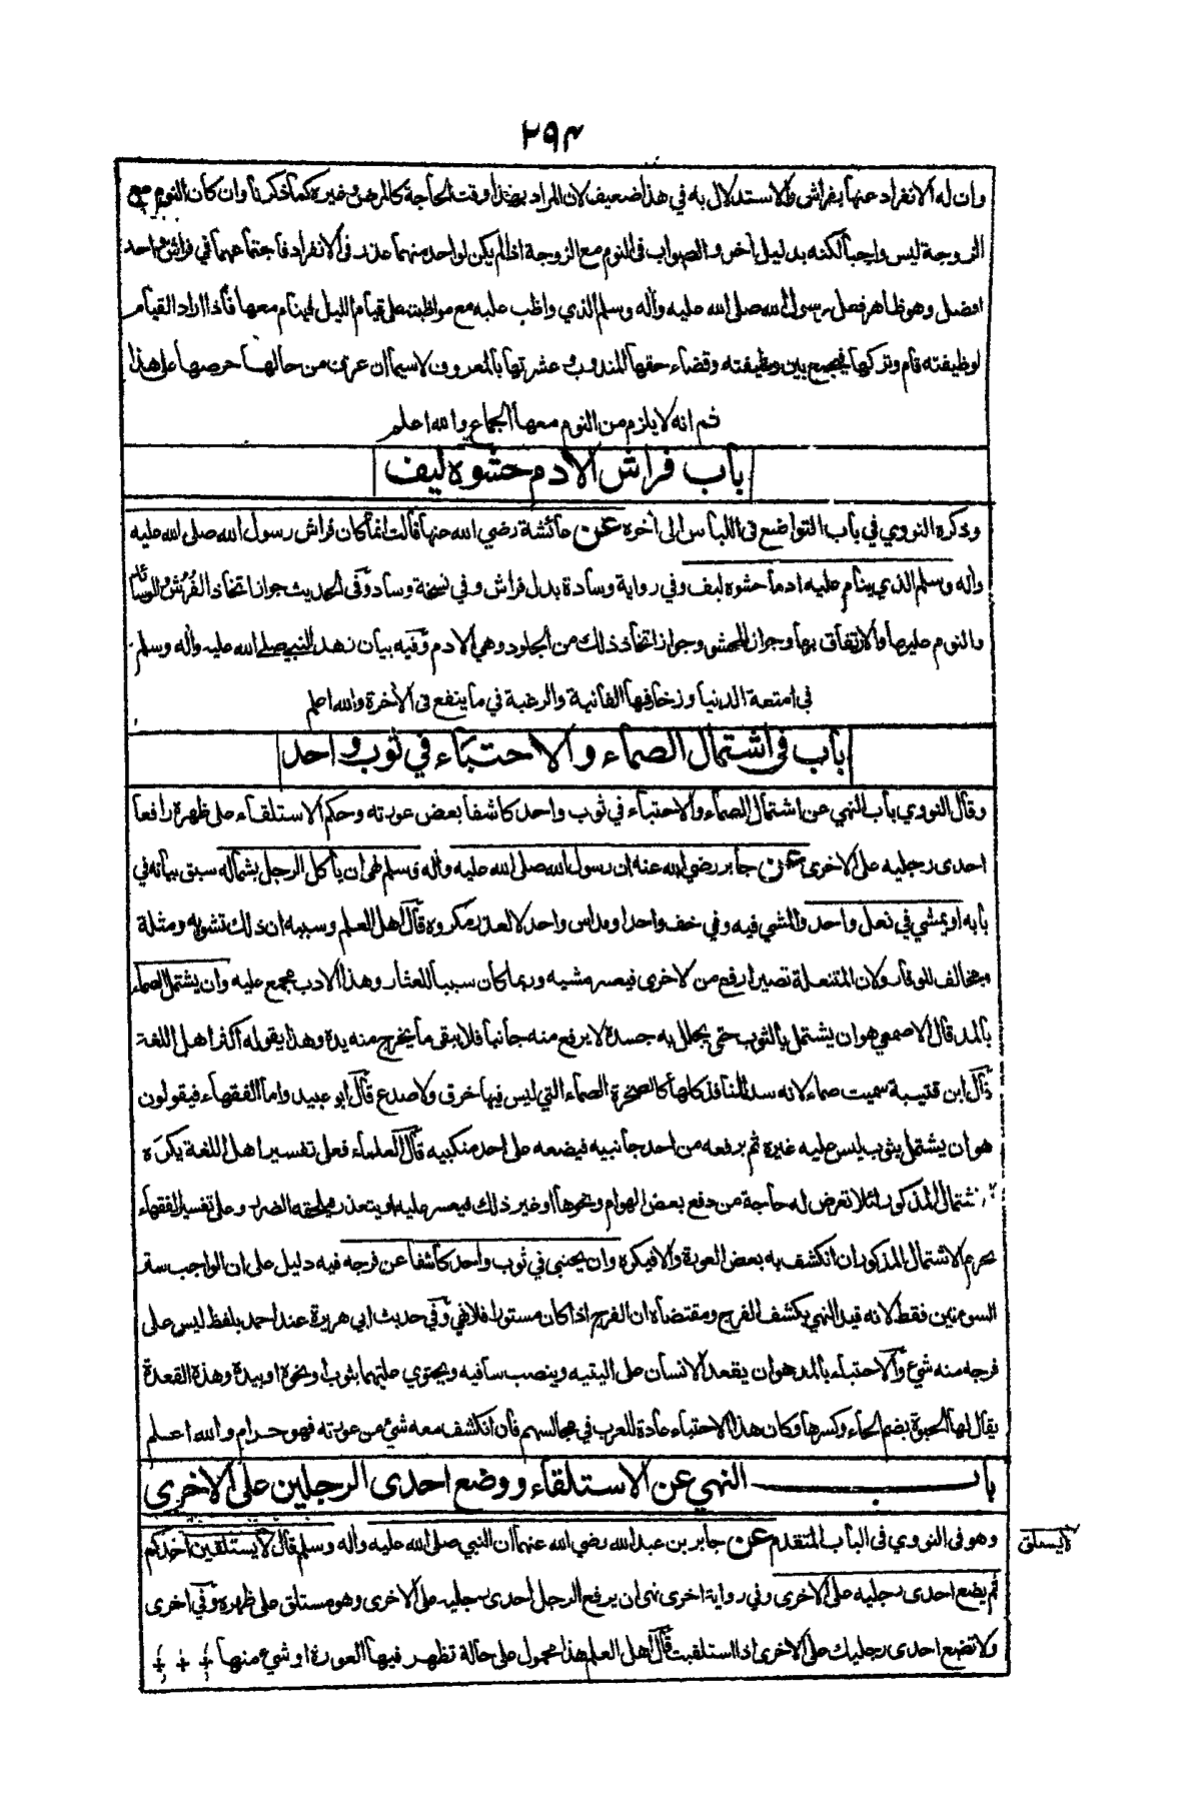 ٢٩٤
وان له الانفراد عنها بفراش والاستدلال به في هذا ضعيف لان المراد بهذا وقت الحاجة كالمرض وغيره كما ذكرنا وان كان النوم مع
الزوجة ليس واجبا لكنه بدليل اخر والصواب فى النوم مع الزوجة اذا لم يكن لواحد منهما عذر فى الانفراد فاجتماعهما في فراش واحد
افضل وهو ظاهر فعل رسول الله صلى الله عليه وأله وسلم الذي واظب عليه مع مواظبته على قيام الليل فينام معها فأذا اراد القيام
لوظيفته قام وتركها فيجمع بين وظيفته وقضاء حقها المندوب وعشرتها بالمعروف لاسيما ان عرف من حالها حرصها على هذا
ثم انه لا يلزم من النوم معها الجماع والله اعلم
باب فراش الادم حشوه ليف
وذكره النووي في باب التواضع فى اللباس الى أخره عن عائشة رضي الله عنها قالت انما كان فراش رسول الله صلى الله عليه
وأله وسلم الذي ينام عليه ادما حشوه ليف وفي رواية وسادة بدل فراش وفي نسخة وساد وفى الحديث جواز اتخاذ الفُرُش والوسائد
والنوم عليها والارتفاق بها وجواز المحشو وجواز اتخاذ ذلك من الجلود وهي الادم وفيه بيان زهد النبي صلى الله عليه وأله وسلم
في امتعة الدنيا وزخارفها الفانية والرغبة في ما ينفع فى الأخرة والله اعلم
باب فى اشتمال الصماء والاحتباء في ثوب واحد
وقال النووي باب النهي عن اشتمال الصماء والاحتباء في ثوب واحد كاشفا بعض عورته وحكم الاستلقاء على ظهره رافعا
احدى رجليه على الاخرى عن جابر رضي الله عنه ان رسول الله صلى الله عليه وأله وسلم نهى ان يأكل الرجل بشماله سبق بيانه في
بابه او يمشي في نعل واحد والمشي فيه وفي خف واحد او مداس واحد لا لعذر مكروه قال اهل العلم وسببه ان ذلك تشويه ومثلة
ومخالف للوقار ولان المتنعلة تصير ارفع من الاخرى فيعسر مشيه وربما كان سببا للعثار وهذا الادب مجمع عليه وان يشتمل الصماء
بالمد قال الاصمعي هو ان يشتمل بالثوب حتى يجلل به جسده لا يرفع منه جانبا فلا يبقى ما يخرج منه يده وهذا يقوله اكثر اهل اللغة
قال ابن قتيبة سميت صماء لانه سد المنافذ كلها كالصخرة الصماء التي ليس فيها خرق ولا صدع قال ابو عبيد واما الفقهاء فيقولون
هو ان يشتمل بثوب ليس عليه غيره ثم يرفعه من احد جانبيه فيضعه على احد منكبيه قال العلماء فعلى تفسير اهل اللغة يكره
الاشتمال المذكور لئلا تعرض له حاجة من دفع بعض الهوام ونحوها او غير ذلك فيعسر عليه او يتعذر فيلحقه الضرر وعلى تفسير الفقهاء
يحرم الاشتمال المذكور ان انكشف به بعض العورة والا فيكره وان يحتبى في ثوب واحد كاشفا عن فرجه فيه دليل على ان الواجب ستر
السوءتين فقط لانه قيد النهي بكشف الفرج ومقتضاه ان الفرج اذا كان مستورا فلا نهي وفي حديث ابي هريرة عند احمد بلفظ ليس على
فرجه منه شيء والاحتباء بالمد هو ان يقعد الانسان على اليتيه وينصب ساقيه ويحتوي عليهما بثوب او نحوه او بيده وهذه القعدة
يقال لها الحبوة بضم الحاء وكسرها وكان هذا الاحتباء عادة للعرب في مجالسهم فان انكشف معه شيء من عورته فهو حرام والله اعلم
باب النهي عن الاستلقاء ووضع احدى الرجلين على الاخرى
وهو فى النووي فى الباب المتقدم عن جابر بن عبد الله رضي الله عنهما ان النبي صلى الله عليه وأله وسلم قال لا يستلقين احدكم
لايستلق
ثم يضع احدى رجليه على الاخرى وفي رواية اخرى نهى ان يرفع الرجل احدى رجليه على الاخرى وهو مستلق على ظهره وفي اخرى
ولا تضع احدى رجليك على الاخرى اذا استلقيت قال اهل العلم هذا محمول على حالة تظهر فيها العورة او شيء منها